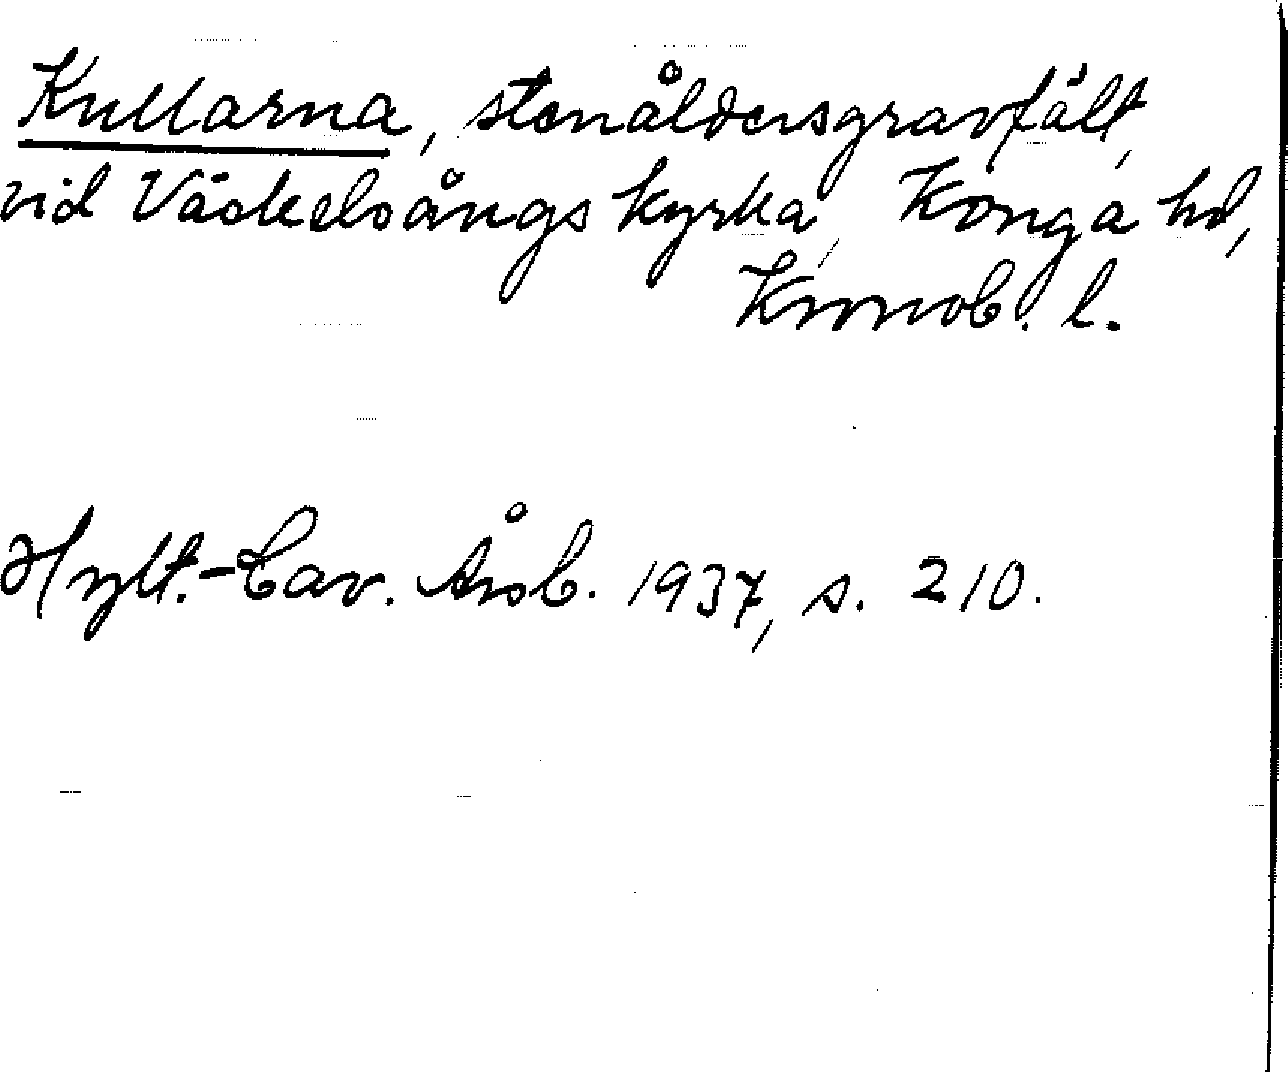 Kullarna, stenåldersgravfält,
vid Väckelsångs kyrka, Konga hd,
Kronob. l.
Hylt.-Cav. Årsb. 1937, s. 210.